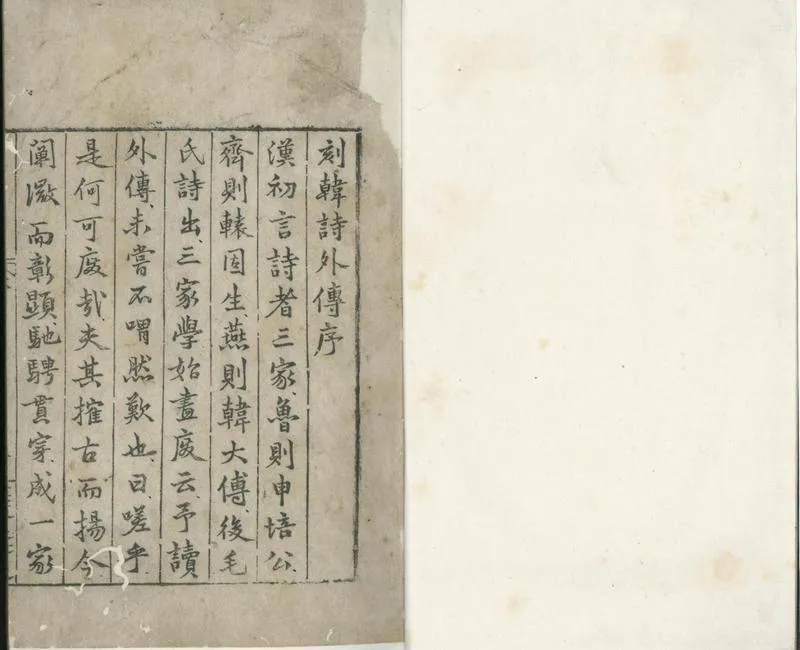 刻韓詩外傳序
漢初言詩者三家魯則申培公
齊則轅固生燕則韓大傅後毛
氏詩出三家學始盡廢云予讀
外傳未嘗不喟然歎也曰嗟乎
是何可廢哉夫其摧古而揚今
闡微而彰顯馳騁貫穿成一家